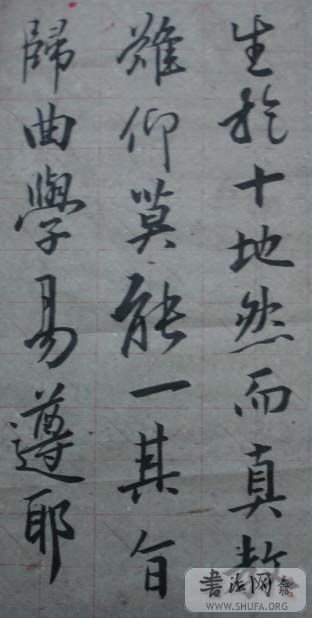 生於十地然而真教
難仰莫能一其旨
歸曲學易遵耶
書法网
WWW.SHUFA.ORG